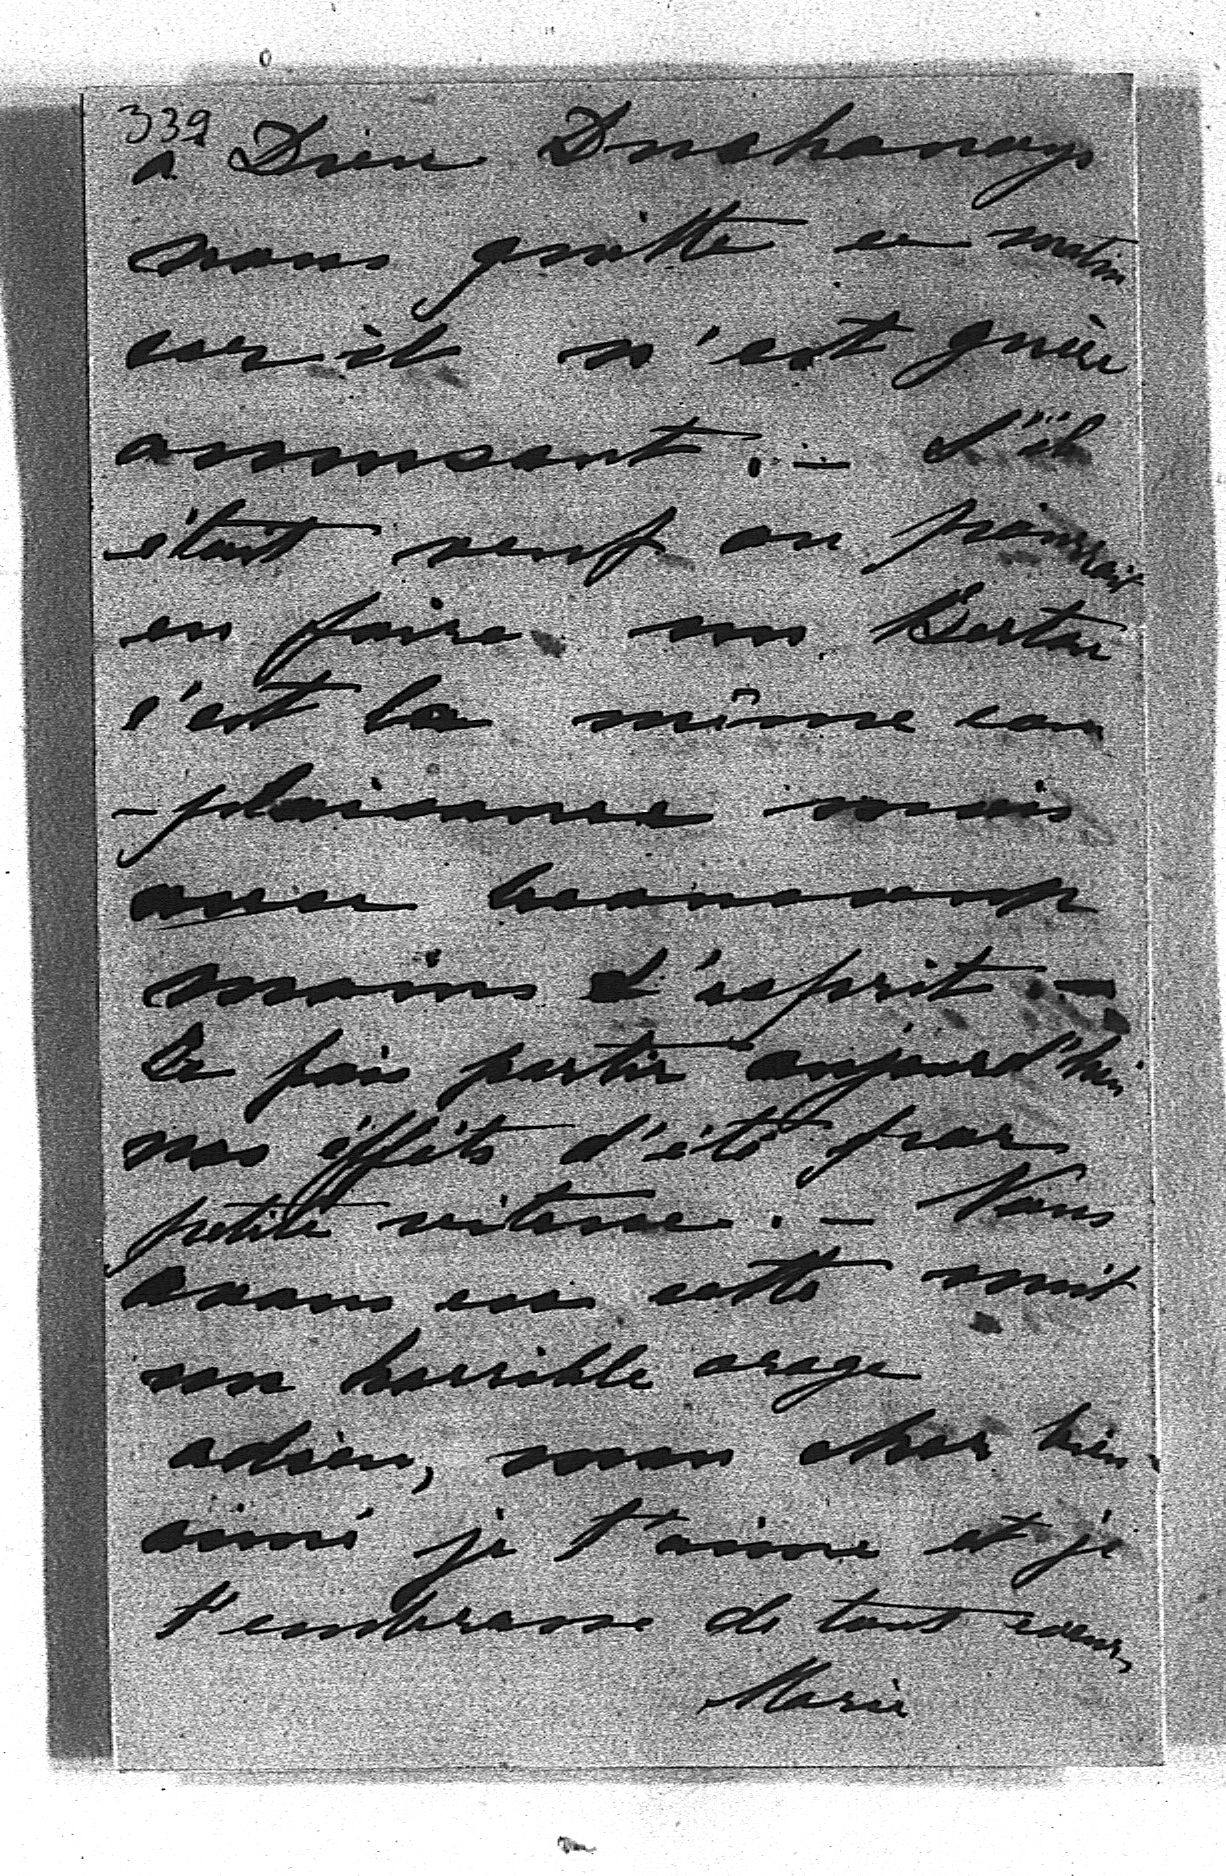 339
a Dieu Duchanoys
nous quitte ce matin
car il n'est guère
amusant. — S'il
était veuf on pourrait
en faire un
c'est la même com
-plaisance mais
avec beaucoup
moins d'esprit —
Je fais partir aujourd'hui
nos éffets d'été par
petite vitesse. — Nous
avons eu cette nuit
un horrible orage
adieu, mon cher bien-
aimé je t'aime et je
t'embrasse de tout coeur,
Marie